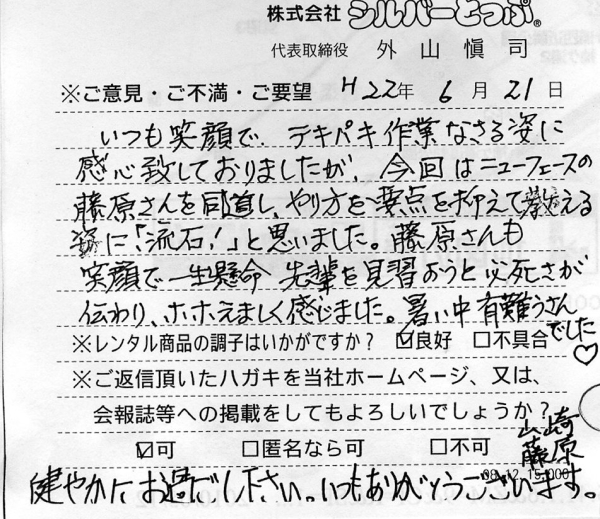 株式会社 シルバーとっぷ®
代表取締役 外山愼司
※ご意見・ご不満・ご要望 H22年 6月 21日
いつも笑顔で、テキパキ作業なさる姿に
感心致しておりましたが、今回はニューフェースの
藤原さんを同道し、やり方を要点を抑えて教える
姿に「流石!」と思いました。藤原さんも
笑顔で一生懸命 先輩を見習おうと必死さが
伝わり、ホホえましく感じました。暑い中有難うさん
でした♡
※レンタル商品の調子はいかがですか? ☑良好 □不具合
※ご返信頂いたハガキを当社ホームページ、又は、
会報誌等への掲載をしてもよろしいでしょうか?
☑可 □匿名なら可 □不可
山崎
藤原
08.12.15,000
健やかにお過ごし下さい。いつもありがとうございます。